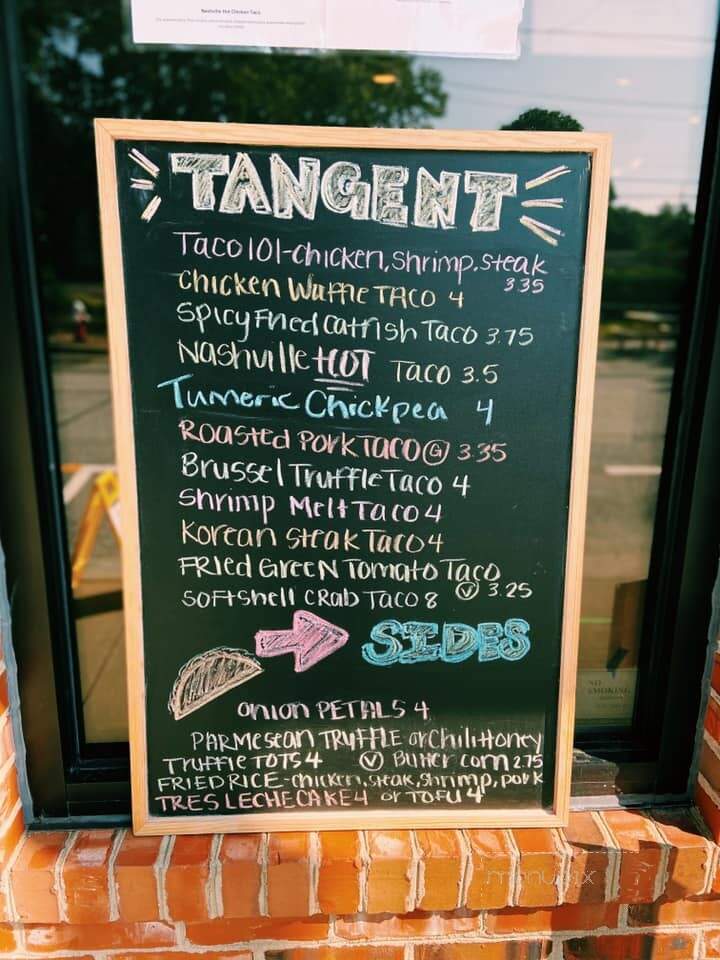 Nashville Hot Chicken Taco
TANGENT
Taco 101-chicken, shrimp, steak
3.35
Chicken Waffle TACO 4
Spicy Fried Catfish Taco 3.75
Nashville HOT Taco 3.5
Tumeric Chickpea 4
Roasted Pork TACO G 3.35
Brussel Truffle Taco 4
Shrimp Melt Taco 4
Korean Steak Taco 4
FRied GReeN Tomato Taco
V 3.25
Softshell CRab Taco 8
SIDES
Onion PETALS 4
PARMesean TRUFFLE or Chili Honey
TRUFFle TOTS 4 V Butter Corn 2.75
FRIED RICE-chicken, steak, shrimp, pork
TRES LECHE CAKE 4 or TOFU 4
NO
SMOKING
menupix